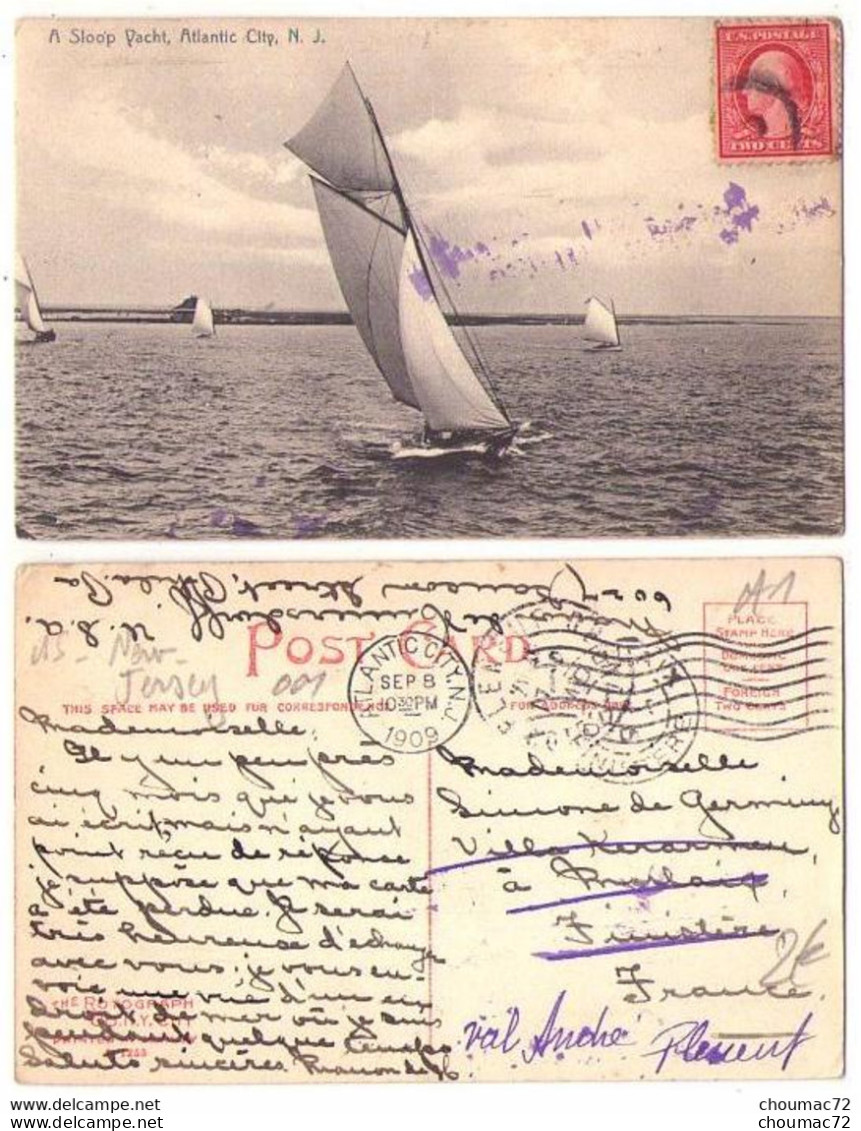 A Sloop Yacht, Atlantic City, N. J.
U.S. POSTAGE
TWO CENTS
6027 Sansom Street, Phila. Pa
U. S. A.
POST CARD
PLACE
STAMP HERE
DOMESTIC
ONE CENT
FOREIGN
TWO CENTS
A5 - New-
Jersey 001
THIS SPACE MAY BE USED FOR CORRESPONDENCE
FOR ADDRESS ONLY
ATLANTIC CITY, N.J.
SEP 8
10 30 PM
1909
Mademoiselle,
Il y un peu près
cinq mois que je vous
ai écrit, mais n'ayant
point reçu de réponse
je suppose que ma carte
a été perdue. Je serai
très heureuse d'échange
avec vous; je vous en-
voie une vue d'un en
droit de mer où je suis
pendant quelque temps
Saluts sincères. Manon de
Mademoiselle
Simone de Germiny
Villa
à
Finistère
France
2€
Val André
Pleneuf
THE ROTOGRAPH
CO., N.Y. CITY
choumac72
choumac72